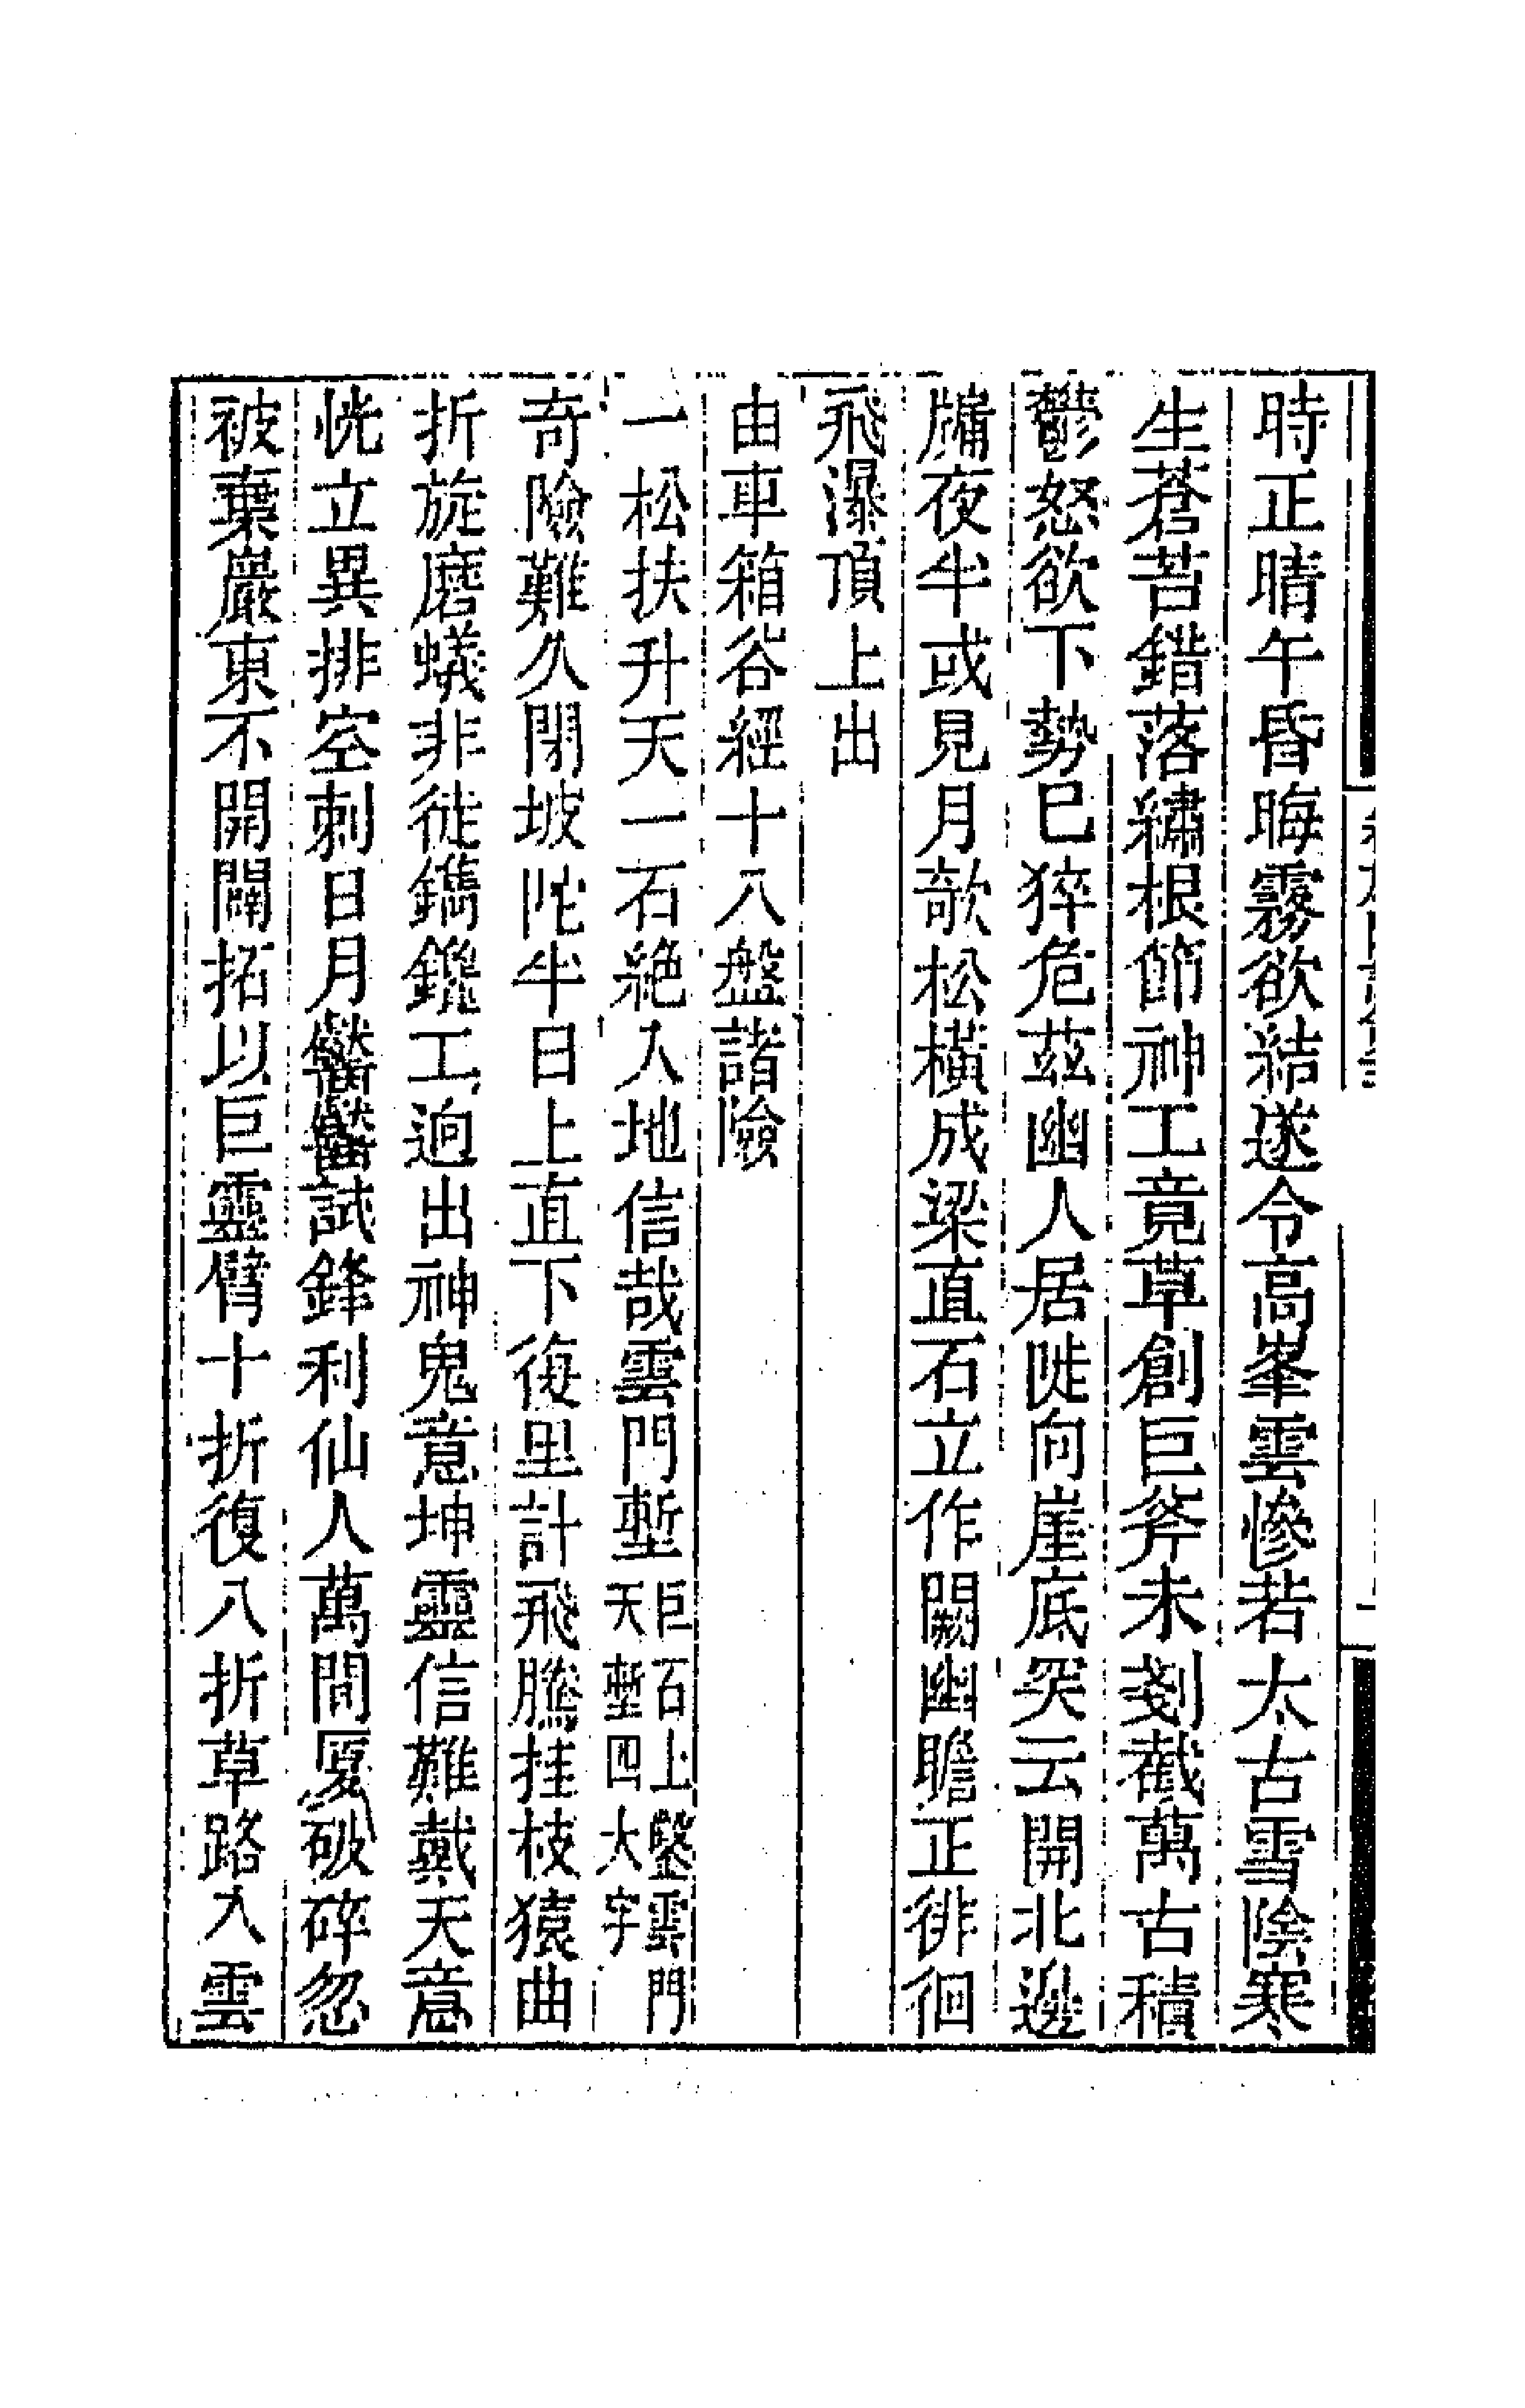 時正晴午昏晦霧欲結遂令高峯雲慘若太古雪陰寒
生蒼苔錯落繡根節神工竟草創巨斧未剗截萬古積
鬱怒欲下勢巳猝危茲幽人居陡向崖底突云開北邊
牗夜半或見月欹松橫成梁直石立作闕幽瞻正徘徊
飛瀑頂上出
由車箱谷經十八盤諸險
一松扶升天一石絶入地信哉雲門塹巨石上鑿雲門天塹四大字
奇險難久閉坡陀半日上直下復里計飛騰挂枝猿曲
折旋磨蟻非徒鐫鑱工逈出神鬼意坤靈信難戴天意
恍立異排空刺日月試鋒利仙人萬間厦破碎忽
被棄嚴東不開闢拓以巨靈臂十折復八折草路入雲